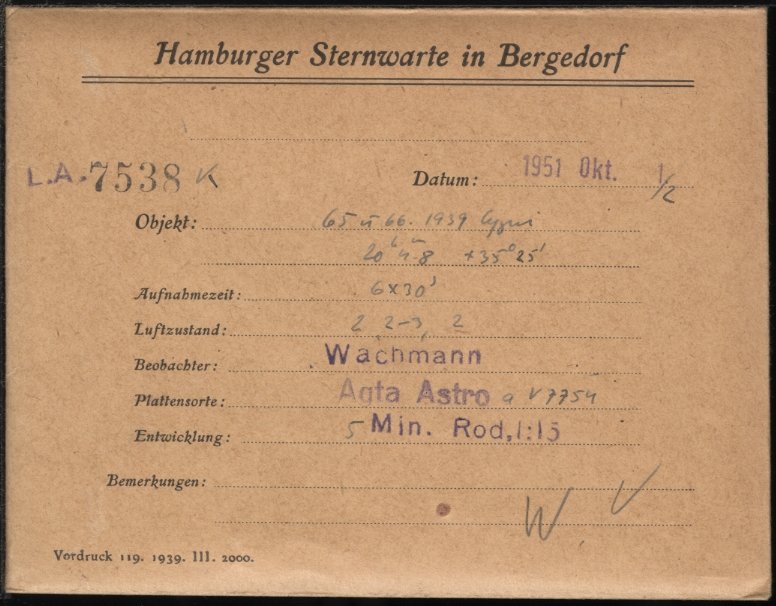 Hamburger Sternwarte in Bergedorf
L.A. 7538 K Datum: 1951 Okt. 1/2
Objekt: 65 u 66. 1939 Cygni
20ʰ 4ᵐ8 +35° 25'
Aufnahmezeit: 6x30'
Luftzustand: 2, 2-3, 2
Beobachter: Wachmann
Plattensorte: Agfa Astro a V7754
Entwicklung: 5 Min. Rod, 1:15
Bemerkungen:
W. V
Vordruck 119. 1939. III. 2000.